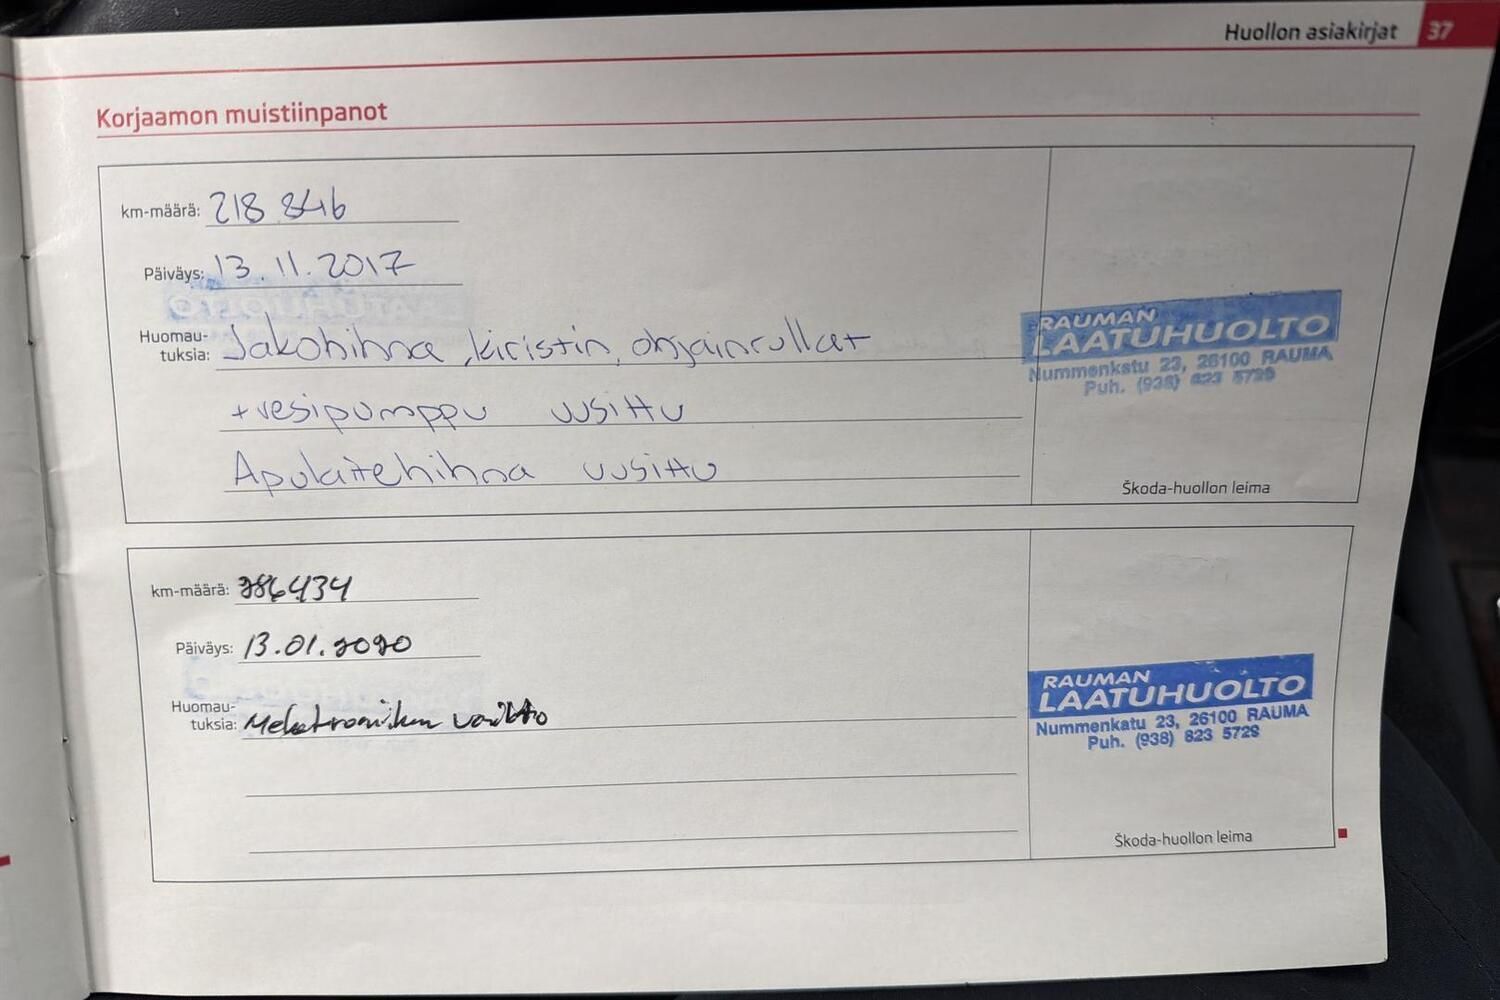 Huollon asiakirjat 37
Korjaamon muistiinpanot
km-määrä: 218 846
Päiväys: 13.11.2017
Huomau-
tuksia: Jakohihna, kiristin, ohjainrullat
+vesipumppu uusittu
Apulaitehihna uusittu
RAUMAN
LAATUHUOLTO
Nummenkatu 23, 26100 RAUMA
Puh. (938) 823 5729
Škoda-huollon leima
km-määrä: 286434
Päiväys: 13.01.2020
Huomau-
tuksia: Mekatroniikan vaihto
RAUMAN
LAATUHUOLTO
Nummenkatu 23, 26100 RAUMA
Puh. (938) 823 5729
Škoda-huollon leima